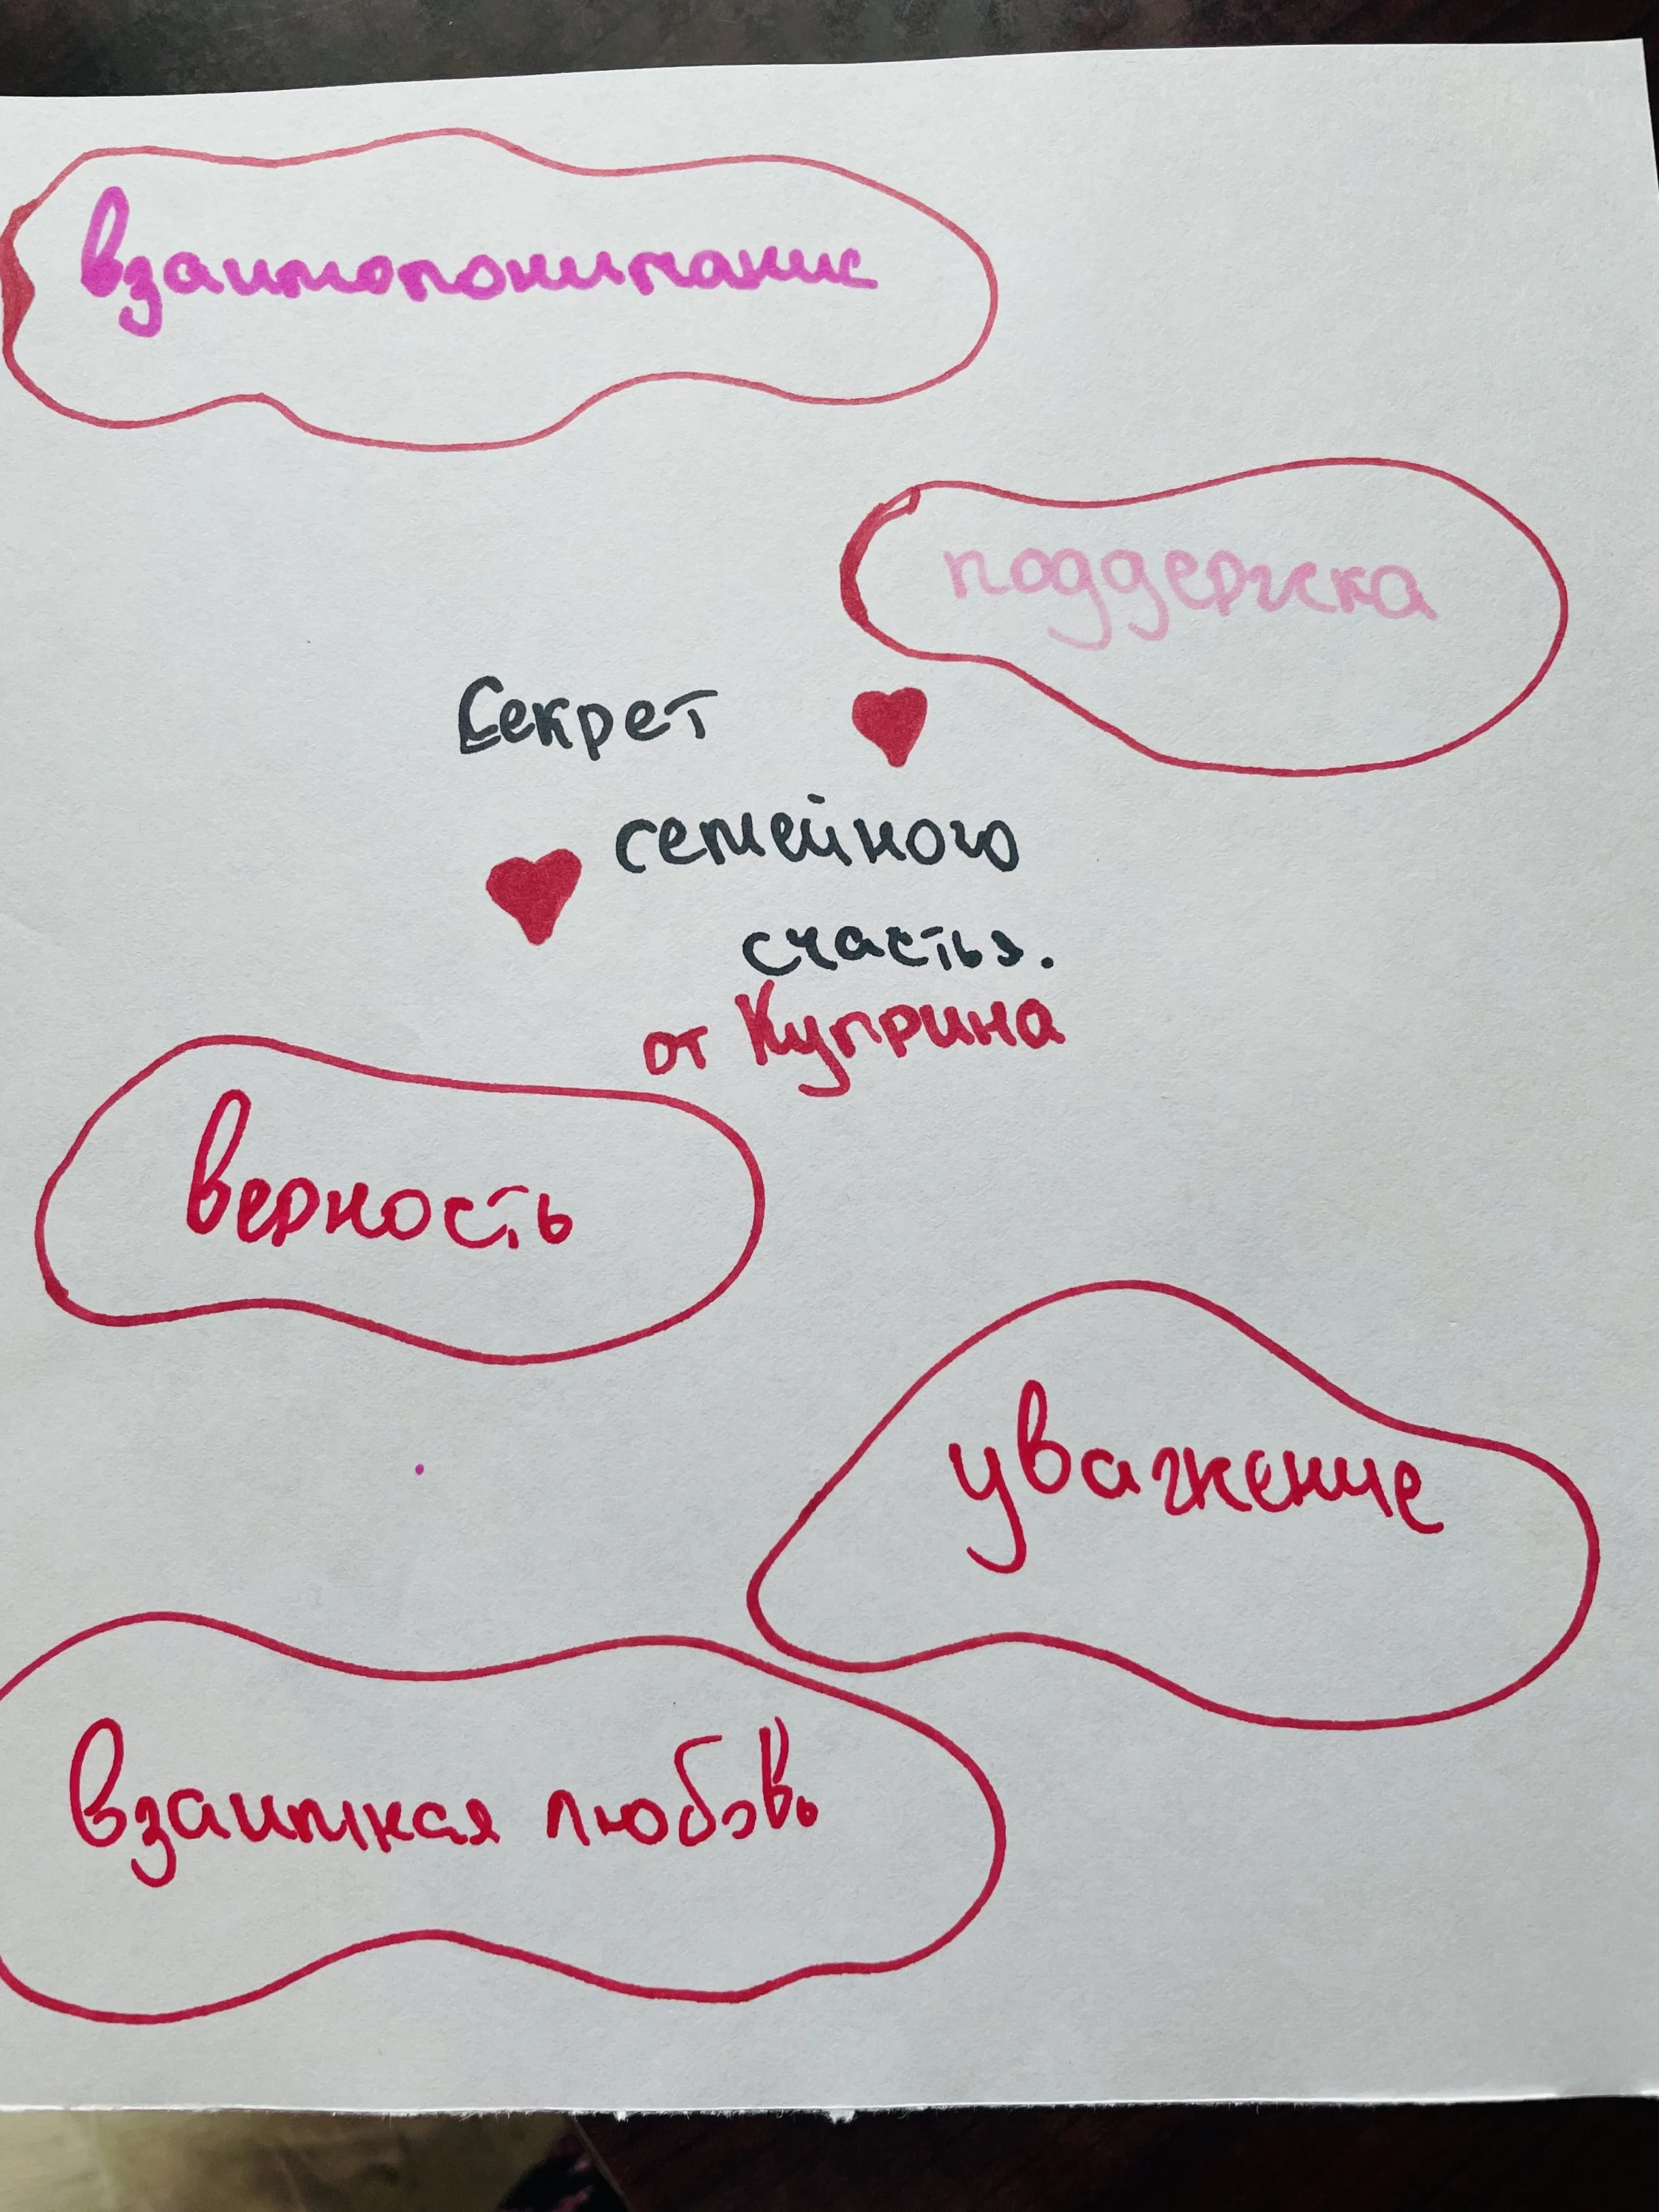 взаимопонимание
поддержка
Секрет
семейного
счастья.
от Куприна
верность
уважение
взаимная любовь